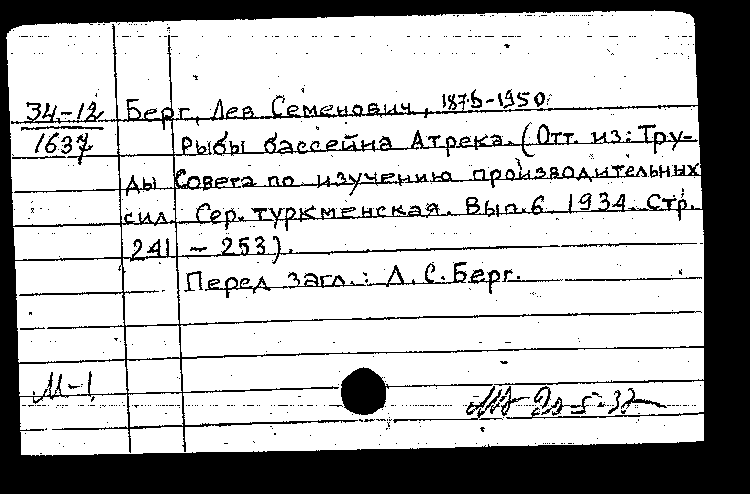 34-12
1637
Берг, Лев Семенович, 1876-1950
Рыбы бассейна Атрека. (Отт. из: Тру-
ды Совета по изучению производительных
сил. Сер. туркменская. Вып. 6 1934. Стр.
241 - 253).
Перед загл.: Л. С. Берг.
М-1
20-5-37